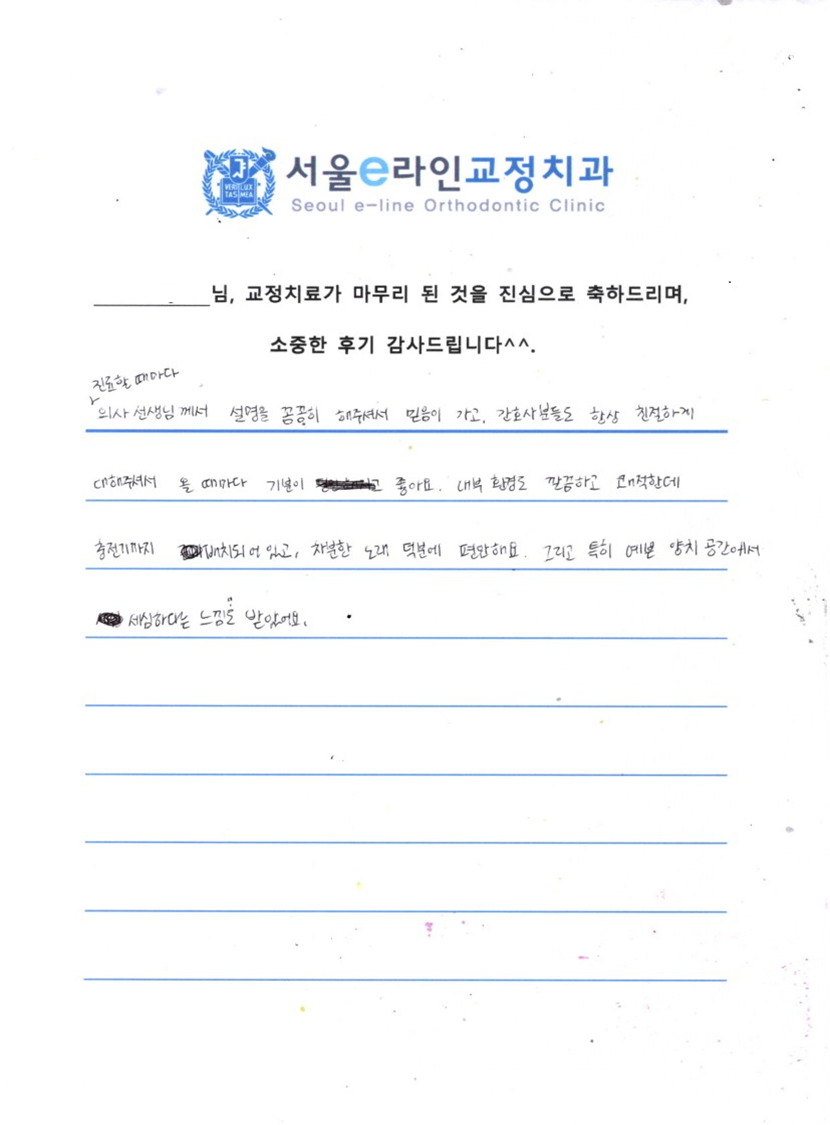 VERI LUX
TAS MEA
서울e라인교정치과
Seoul e-line Orthodontic Clinic
님, 교정치료가 마무리 된 것을 진심으로 축하드리며,
소중한 후기 감사드립니다^^.
진료할 때마다
의사 선생님께서 설명을 꼼꼼히 해주셔서 믿음이 가고, 간호사분들도 항상 친절하게
대해주셔서 올 때마다 기분이 좋아요. 내부 환경도 깔끔하고 쾌적한데
충전기까지 배치되어 있고, 차분한 노래 덕분에 편안해요. 그리고 특히 예쁜 양치 공간에서
세심하다는 느낌을 받았어요.